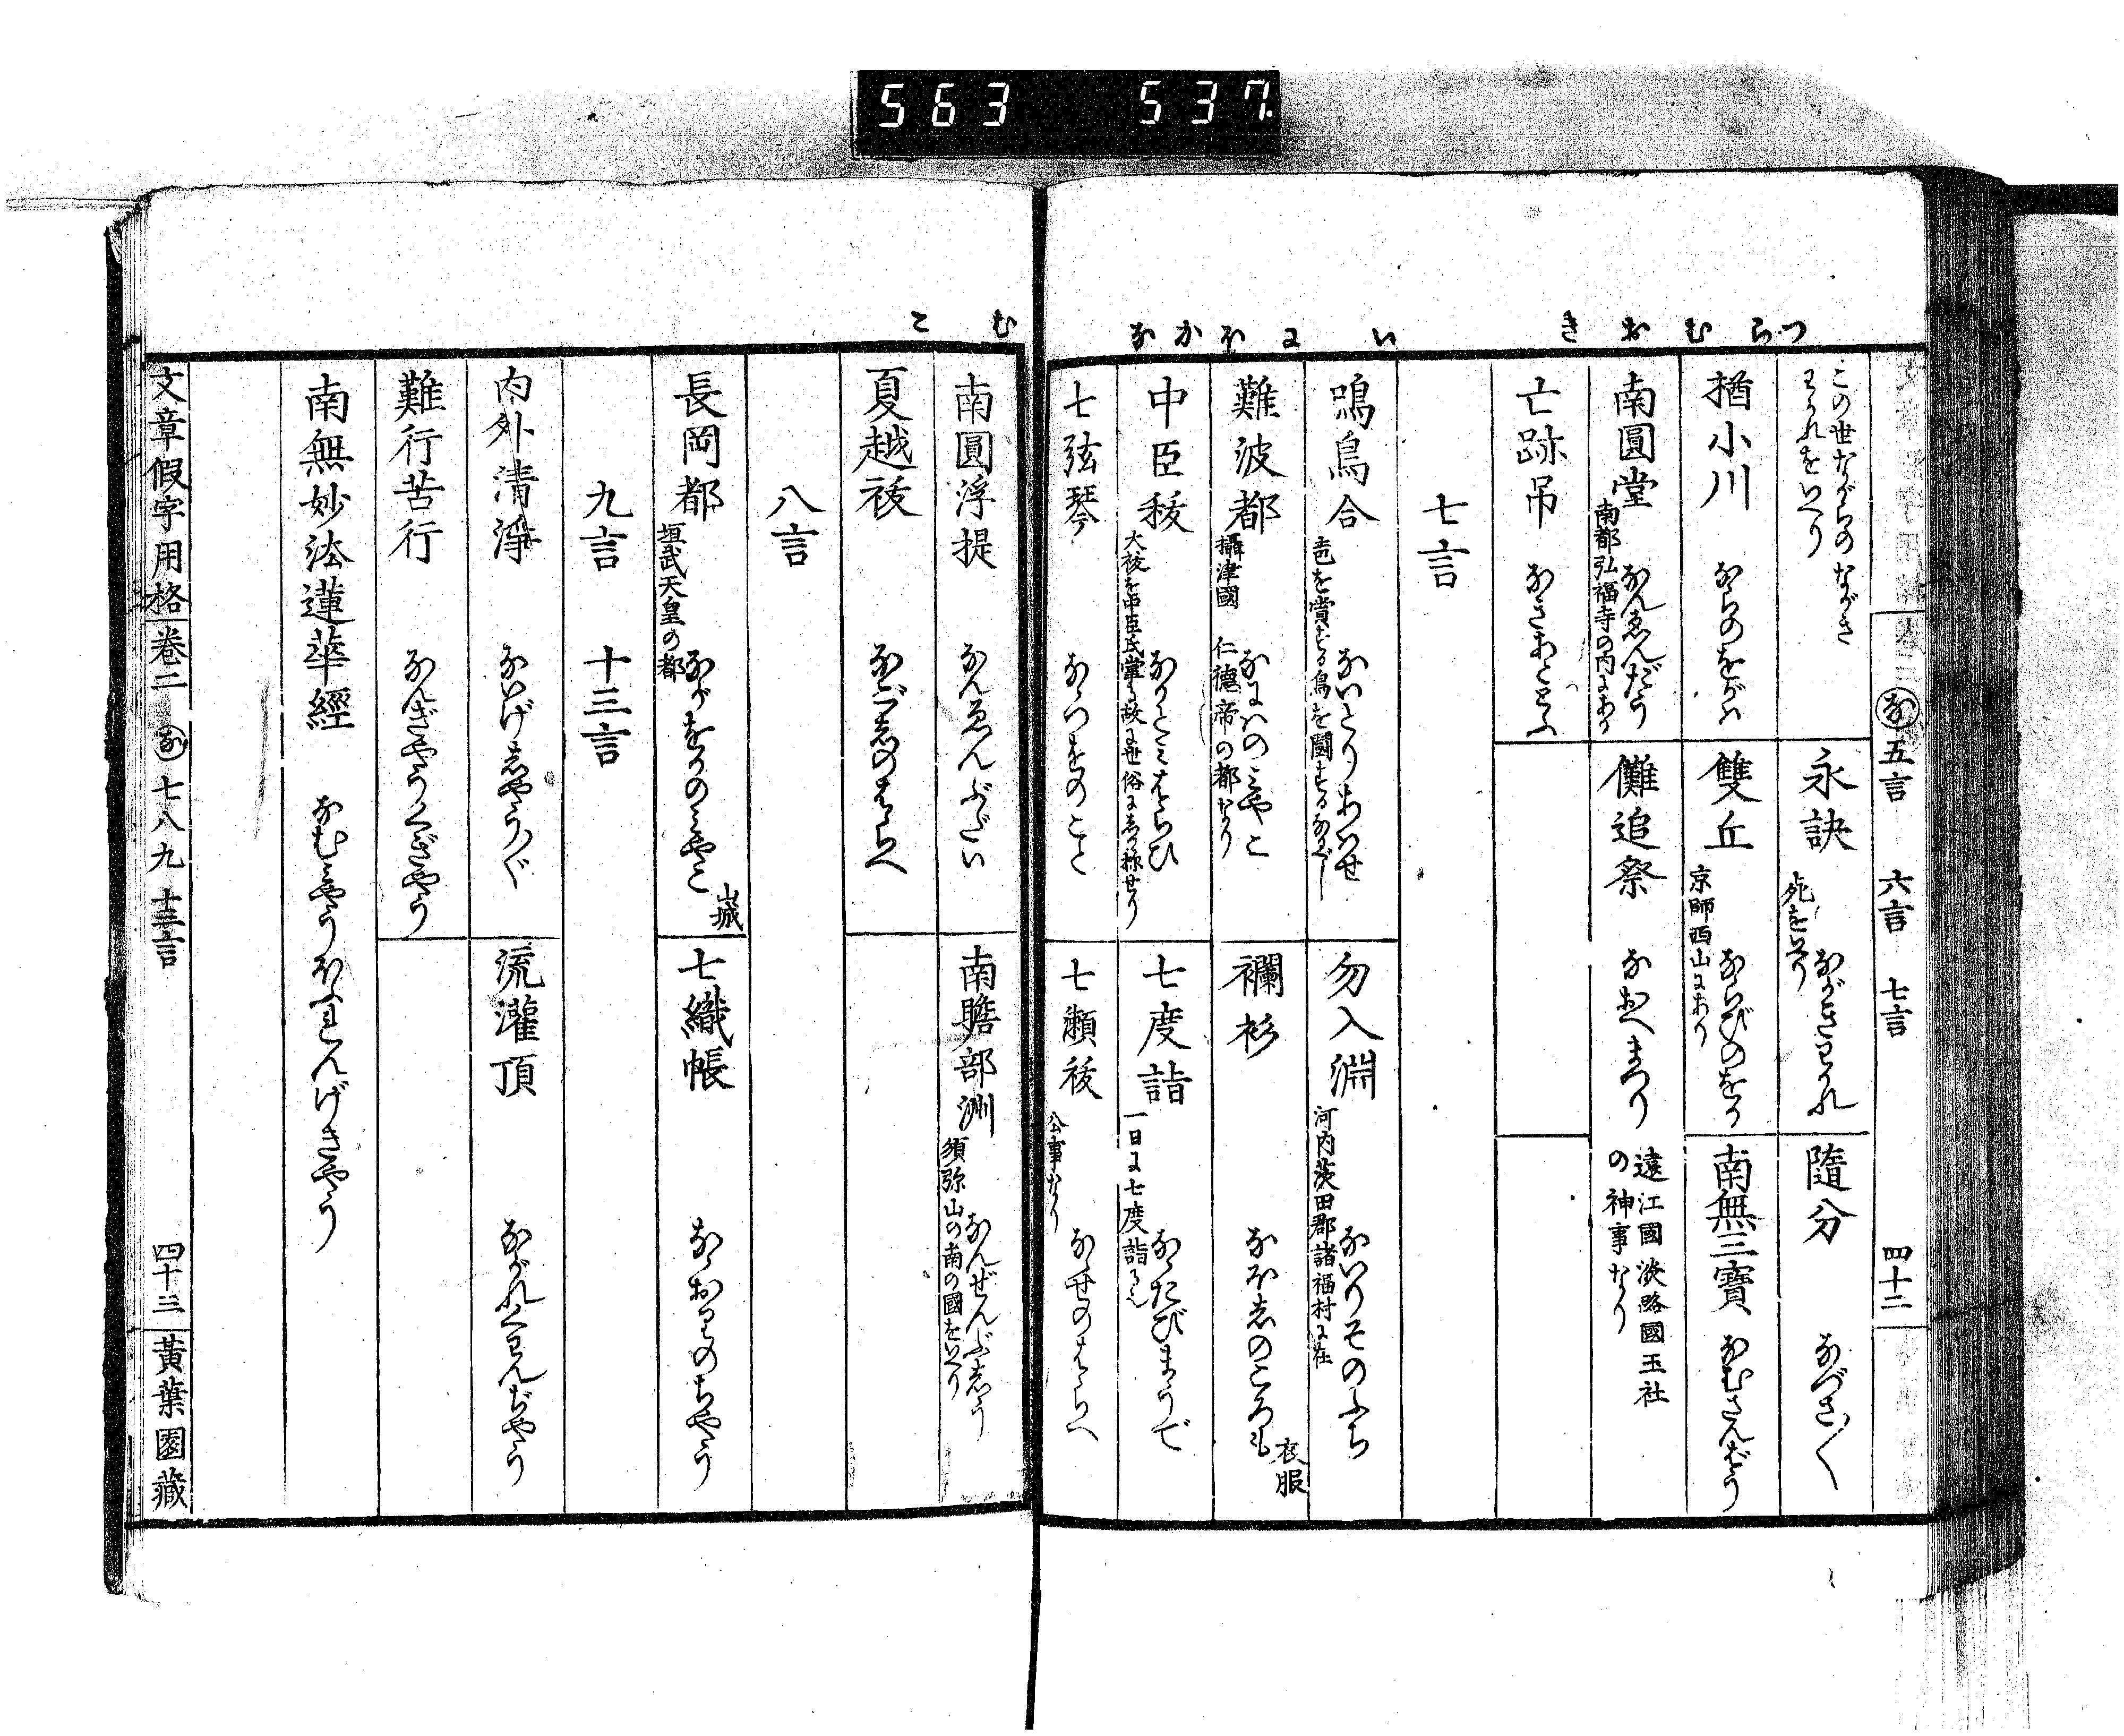 563 537
つらむおきいにほかな
な 五言 六言 七言 四十二
この世ながらのながき
わかれをいへり
永訣 ながきわかれ
死をいへり
隨分 なづさ〱
楢小川 ならのをがハ
雙丘 ならびのをか
京師西山にあり
南無三寶 なむさんぼう
南圓堂 なんゑんだう
南都弘福寺の内にあり
儺追祭 なおへまつり
遠江國淡路國玉社
の神事なり
亡跡吊 なきあととふ
七言
鳴鳥合 ないとりあハせ
勿入淵 ないりそのふち
河内茨田郡諸福村に在
難波都 なにハのミやこ
攝津國 仁德帝の都なり
襴衫 なほしのころも
衣服
中臣秡 なかとミはらひ
七度詣 なゝたびまうで
一日に七度詣る也
七弦琴 なゝつをのこと
七瀬秡 なゝせのはらへ
公事なり
むこ
南圓浮提 なんゑんぶだい
南贍部洲 なんぜんぶしう
須弥山の南の國をいへり
夏越秡 なごしのはらへ
八言
長岡都 ながをかのミやこ
山城
垣武天皇の都
七織帳 なゝおりのちやう
九言 十三言
内外清淨 ないげしやう〲
流灌頂 ながれくわんぢやう
難行苦行 なんぎやうくぎやう
南無妙法蓮華經 なむミやうほふれんげきやう
文章假字用格 卷二 な 七八九 十三言 四十三 黃葉園藏